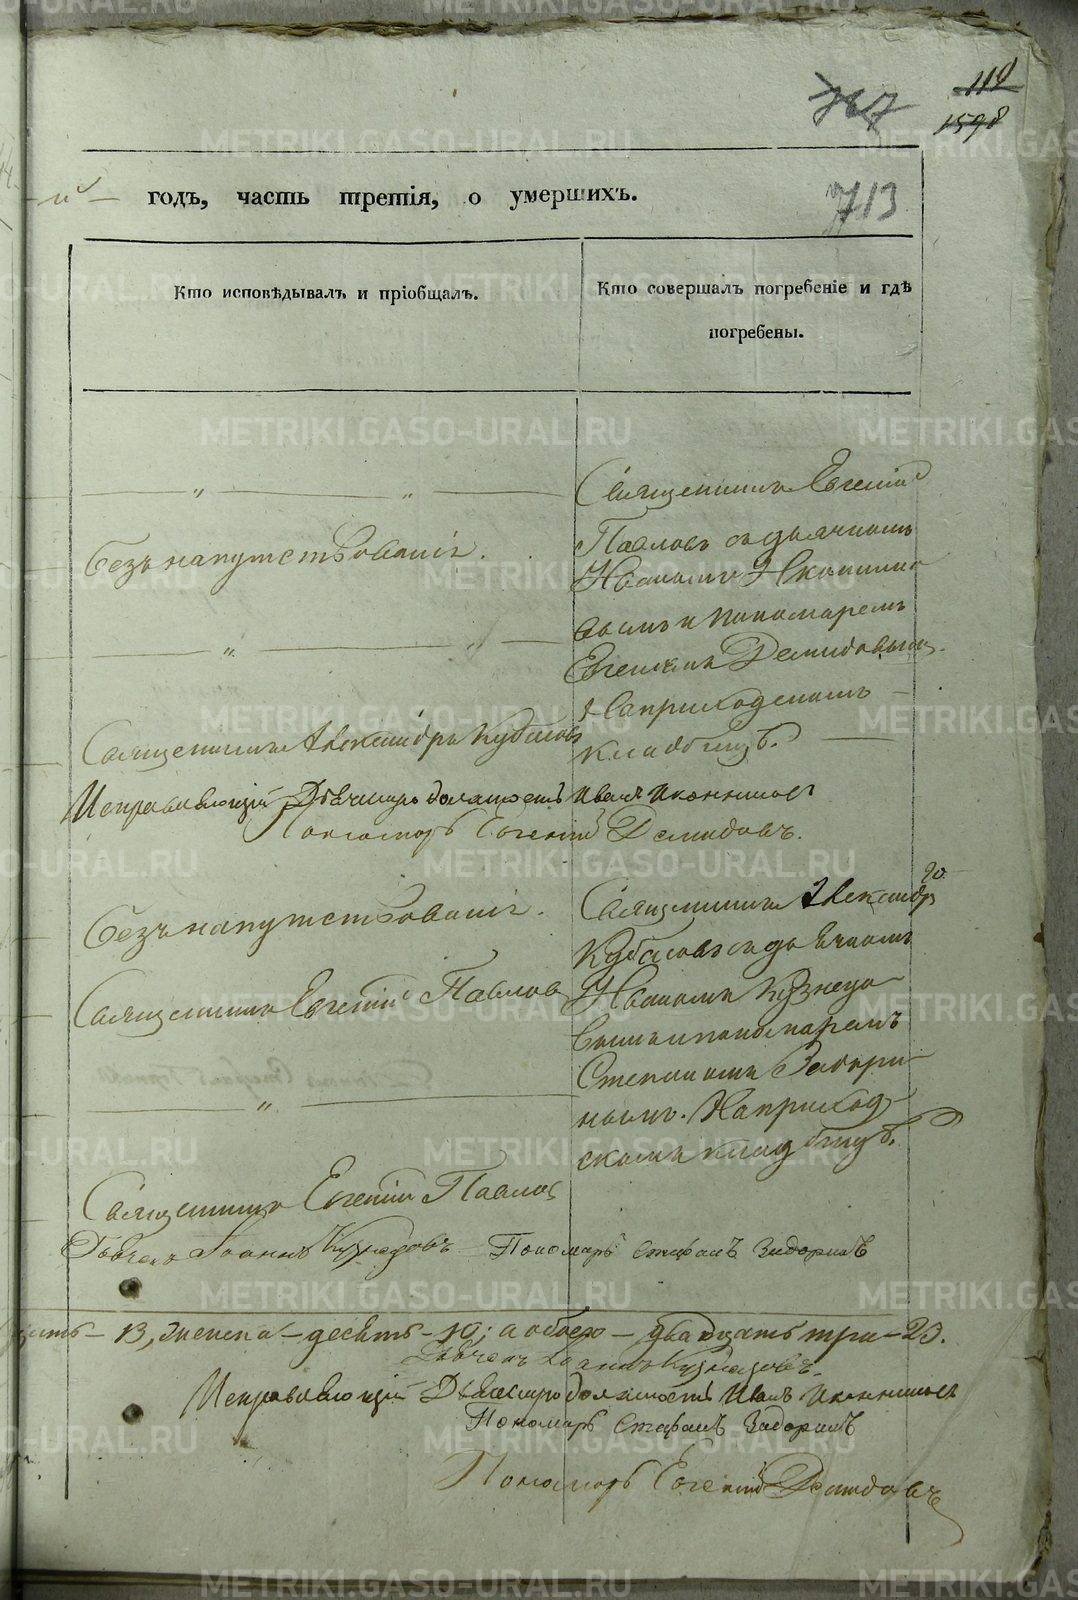 112
767
1598
713
годъ, часть третія, о умершихъ.
Кто исповѣдывалъ и пріобщалъ.
Кто совершалъ погребеніе и гдѣ
погребены.
Священникъ Евгеній
Павловъ съ дьячкомъ
Безъ напутствованія.
Иваномъ Иконнико-
вымъ и пономаремъ
Евгеніемъ Демидовымъ.
На приходскомъ
кладбищѣ.
Священникъ Александръ Кубасовъ
Исправляющій Дьячкову должность Иванъ Иконниковъ
Пономарь Евгеній Демидовъ.
Священникъ Александръ
Безъ напутствованія.
Кубасовъ съ дьячкомъ
Священникъ Евгеній Павловъ
Иваномъ Кузнецо-
вымъ и пономаремъ
Степаномъ Задори-
нымъ. На приход-
скомъ кладбищѣ.
Священникъ Евгеній Павловъ
Дьячекъ Іоаннъ Кузнецовъ Пономарь Стефанъ Задоринъ
13, женска – десять – 10; а обоего – двадцать три – 23.
Дьячекъ Іоаннъ Кузнецовъ.
Исправляющій Дьячкову должность Иванъ Иконниковъ
Пономарь Стефанъ Задоринъ
Пономарь Евгеній Демидовъ
METRIKI.GASO-URAL.RU